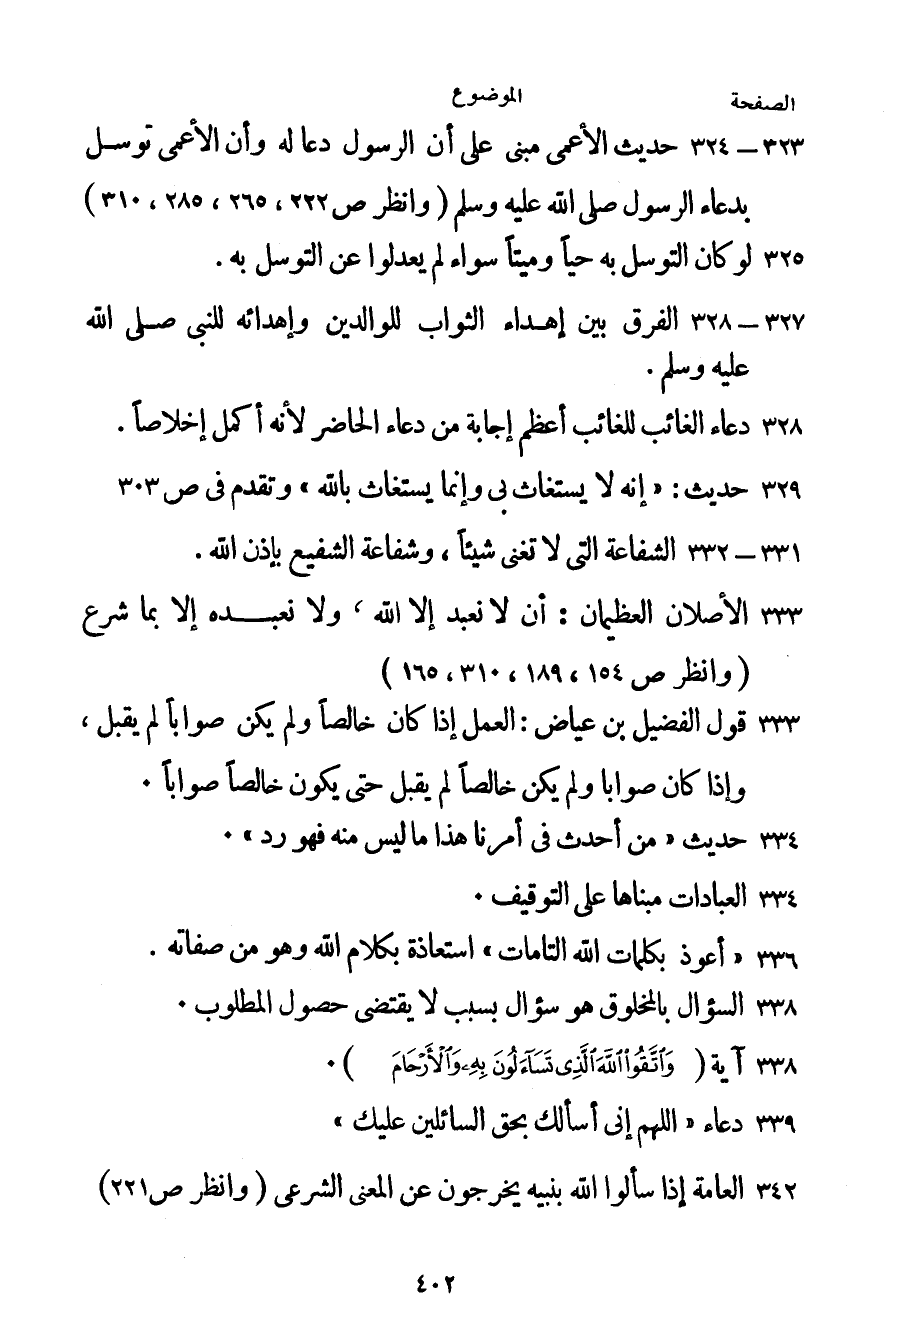 الصفحة الموضوع
٣٢٣ – ٣٢٤ حديث الأعمى مبنى على أن الرسول دعا له وأن الأعمى توسل
بدعاء الرسول صلى الله عليه وسلم ( وانظر ص ٢٢٢ ، ٢٦٥ ، ٢٨٥ ، ٣١٠ )
٣٢٥ لو كان التوسل به حياً وميتاً سواء لم يعدلوا عن التوسل به .
٣٢٧ – ٣٢٨ الفرق بين إهداء الثواب للوالدين وإهدائه للنبى صلى الله
عليه وسلم .
٣٢٨ دعاء الغائب للغائب أعظم إجابة من دعاء الحاضر لأنه أكمل إخلاصاً .
٣٢٩ حديث : « إنه لا يستغاث بى وإنما يستغاث بالله » وتقدم فى ص ٣٠٣
٣٣١ – ٣٣٢ الشفاعة التى لا تغنى شيئاً ، وشفاعة الشفيع بإذن الله .
٣٣٣ الأصلان العظيمان : أن لا نعبد إلا الله ، ولا نعبده إلا بما شرع
( وانظر ص ١٥٤ ، ١٨٩ ، ٣١٠ ، ١٦٥ )
٣٣٣ قول الفضيل بن عياض : العمل إذا كان خالصاً ولم يكن صواباً لم يقبل ،
وإذا كان صوابا ولم يكن خالصاً لم يقبل حتى يكون خالصاً صواباً .
٣٣٤ حديث « من أحدث فى أمرنا هذا ما ليس منه فهو رد » .
٣٣٤ العبادات مبناها على التوقيف .
٣٣٦ « أعوذ بكلمات الله التامات » استعاذة بكلام الله وهو من صفاته .
٣٣٨ السؤال بالمخلوق هو سؤال بسبب لا يقتضى حصول المطلوب .
٣٣٨ آية ( وَٱتَّقُوا۟ ٱللَّهَ ٱلَّذِى تَسَآءَلُونَ بِهِۦ وَٱلْأَرْحَامَ ) .
٣٣٩ دعاء « اللهم إنى أسألك بحق السائلين عليك »
٣٤٢ العامة إذا سألوا الله بنبيه يخرجون عن المعنى الشرعى ( وانظر ص ٢٢١ )
٤٠٢